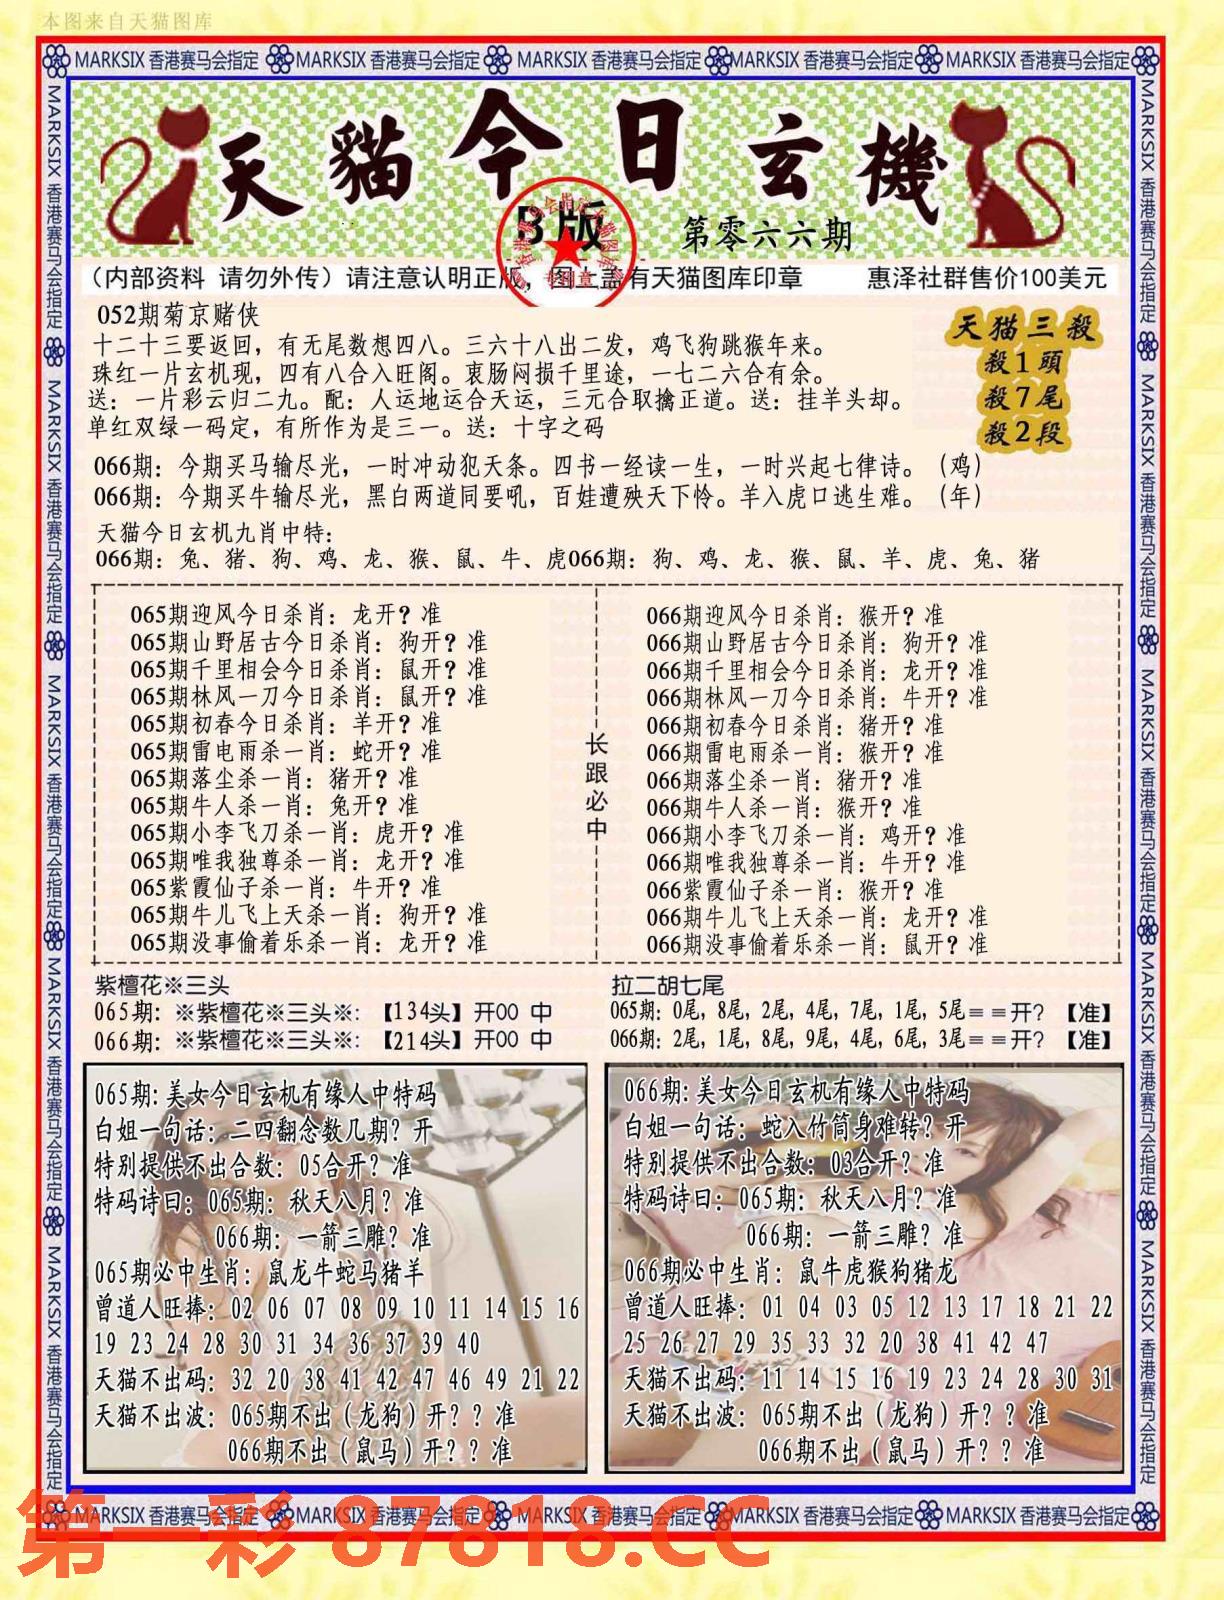 本图来自天猫图库
MARKSIX 香港赛马会指定 MARKSIX 香港赛马会指定 MARKSIX 香港赛马会指定 MARKSIX 香港赛马会指定 MARKSIX 香港赛马会指定
天貓今日玄機
B版
第零六六期
(内部资料 请勿外传)请注意认明正版,图上盖有天猫图库印章 惠泽社群售价100美元
052期菊京赌侠
十二十三要返回，有无尾数想四八。三六十八出二发，鸡飞狗跳猴年来。
珠红一片玄机现，四有八合入旺阁。衷肠闷损千里途，一七二六合有余。
送：一片彩云归二九。配：人运地运合天运，三元合取擒正道。送：挂羊头却。
单红双绿一码定，有所作为是三一。送：十字之码
天猫三殺
殺1頭
殺7尾
殺2段
066期：今期买马输尽光，一时冲动犯天条。四书一经读一生，一时兴起七律诗。（鸡）
066期：今期买牛输尽光，黑白两道同要吼，百娃遭殃天下怜。羊入虎口逃生难。（年）
天猫今日玄机九肖中特：
066期：兔、猪、狗、鸡、龙、猴、鼠、牛、虎066期：狗、鸡、龙、猴、鼠、羊、虎、兔、猪
065期迎风今日杀肖：龙开？准
065期山野居古今日杀肖：狗开？准
065期千里相会今日杀肖：鼠开？准
065期林风一刀今日杀肖：鼠开？准
065期初春今日杀肖：羊开？准
065期雷电雨杀一肖：蛇开？准
065期落尘杀一肖：猪开？准
065期牛人杀一肖：兔开？准
065期小李飞刀杀一肖：虎开？准
065期唯我独尊杀一肖：龙开？准
065紫霞仙子杀一肖：牛开？准
065期牛儿飞上天杀一肖：狗开？准
065期没事偷着乐杀一肖：龙开？准
长跟必中
066期迎风今日杀肖：猴开？准
066期山野居古今日杀肖：狗开？准
066期千里相会今日杀肖：龙开？准
066期林风一刀今日杀肖：牛开？准
066期初春今日杀肖：猪开？准
066期雷电雨杀一肖：猴开？准
066期落尘杀一肖：猪开？准
066期牛人杀一肖：猴开？准
066期小李飞刀杀一肖：鸡开？准
066期唯我独尊杀一肖：牛开？准
066紫霞仙子杀一肖：猴开？准
066期牛儿飞上天杀一肖：龙开？准
066期没事偷着乐杀一肖：鼠开？准
紫檀花※三头
065期：※紫檀花※三头※：【134头】开00 中
066期：※紫檀花※三头※：【214头】开00 中
拉二胡七尾
065期：0尾，8尾，2尾，4尾，7尾，1尾，5尾＝＝开？【准】
066期：2尾，1尾，8尾，9尾，4尾，6尾，3尾＝＝开？【准】
065期：美女今日玄机有缘人中特码
白姐一句话：二四翻念数几期？开
特别提供不出合数：05合开？准
特码诗曰：065期：秋天八月？准
066期：一箭三雕？准
065期必中生肖：鼠龙牛蛇马猪羊
曾道人旺捧：02 06 07 08 09 10 11 14 15 16
19 23 24 28 30 31 34 36 37 39 40
天猫不出码：32 20 38 41 42 47 46 49 21 22
天猫不出波：065期不出（龙狗）开？？准
066期不出（鼠马）开？？准
066期：美女今日玄机有缘人中特码
白姐一句话：蛇入竹筒身难转？开
特别提供不出合数：03合开？准
特码诗曰：065期：秋天八月？准
066期：一箭三雕？准
066期必中生肖：鼠牛虎猴狗猪龙
曾道人旺捧：01 04 03 05 12 13 17 18 21 22
25 26 27 29 35 33 32 20 38 41 42 47
天猫不出码：11 14 15 16 19 23 24 28 30 31
天猫不出波：065期不出（龙狗）开？？准
066期不出（鼠马）开？？准
MARKSIX 香港赛马会指定 MARKSIX 香港赛马会指定 MARKSIX 香港赛马会指定 MARKSIX 香港赛马会指定 MARKSIX 香港赛马会指定
第一彩 87818.CC
MARKSIX 香港赛马会指定 MARKSIX 香港赛马会指定 MARKSIX 香港赛马会指定 MARKSIX 香港赛马会指定 MARKSIX 香港赛马会指定
MARKSIX 香港赛马会指定 MARKSIX 香港赛马会指定 MARKSIX 香港赛马会指定 MARKSIX 香港赛马会指定 MARKSIX 香港赛马会指定